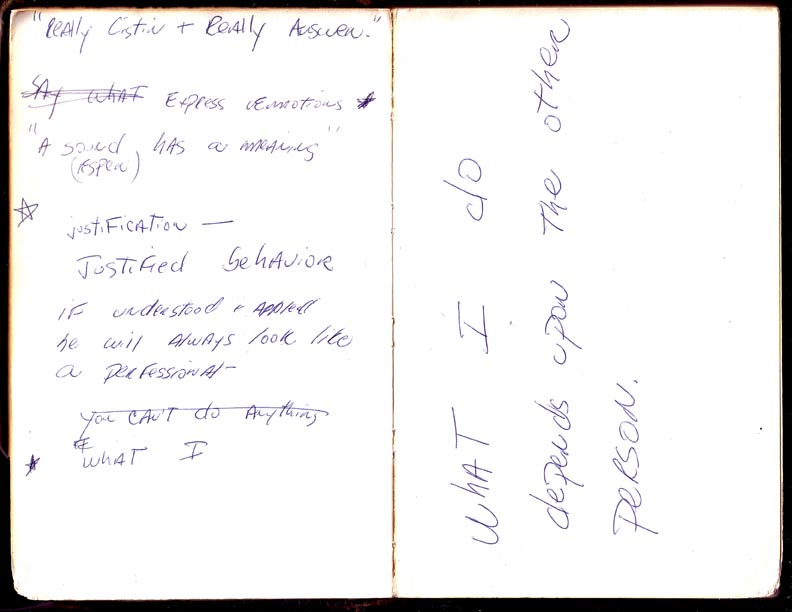 "Really Listin + Really Answer."
Say what Express vemotions
"A sound has a meaning"
(Aspen)
justification —
Justified behavior
if understood + applied
he will always look like
a perfessional-
you can't do anything
what I
What I do
depends upon the other
person.